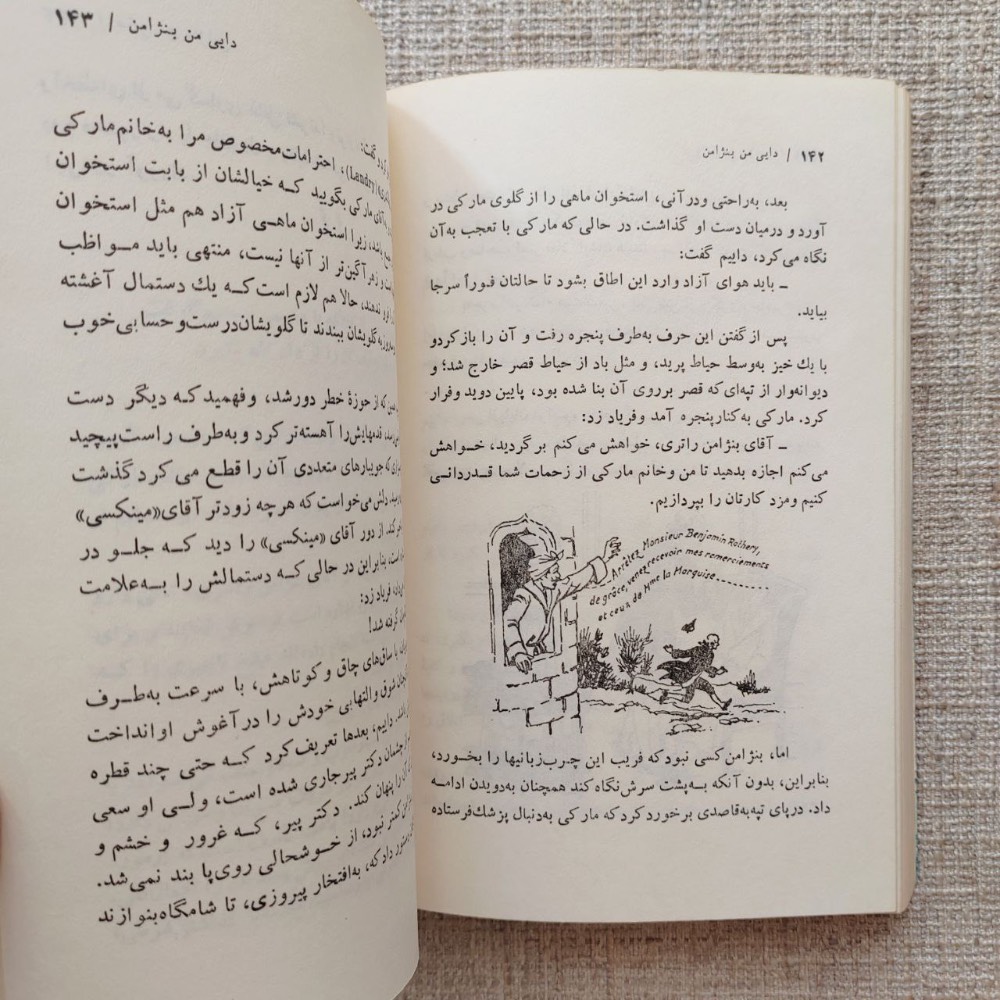 ۱۴۲ / دایی من بنژامن
بعد، به‌راحتی ودرآنی، استخوان ماهی را از گلوی مارکی در
آورد و درمیان دست او گذاشت. در حالی که مارکی با تعجب به‌آن
نگاه می‌کرد، داییم گفت:
ـ باید هوای آزاد وارد این اطاق بشود تا حالتان فوراً سرجا
بیاید.
پس از گفتن این حرف به‌طرف پنجره رفت و آن را بازکردو
با یك خیز به‌وسط حیاط پرید، و مثل باد از حیاط قصر خارج شد؛ و
دیوانه‌وار از تپه‌ای‌که قصر برروی آن بنا شده بود، پایین دوید وفرار
کرد. مارکی به‌کنارپنجره آمد وفریاد زد:
ـ آقای بنژامن راتری، خواهش می‌کنم برگردید، خـواهش
می‌کنم اجازه بدهید تا من‌وخانم مارکی از زحمات شما قـدردانـی
کنیم ومزد کارتان را بپردازیم.
Arrêtez Monsieur Benjamin Rathery,
de grâce, venez recevoir mes remerciements
et ceux de Mme la Marquise
اما، بنژامن‌کسی نبودکه فریب این چرب‌زبانیها را بخورد،
بنابراین، بدون آنکه بـه‌پشت سرش‌نگاه‌کند همچنان به‌دویدن ادامـه
داد. درپای تپه‌به‌قاصدی برخورد کردکه مارکی به‌دنبال پزشك‌فرستاده
دایی من بنژامن / ۱۴۳
گفت:
(Landry)، احترامات‌مخصوص مرا به‌خانم‌مارکی
مارکی بگویید کـه خیالشان از بابت استخوان
باشد، زیرا استخوان ماهـی آزاد هم مثل استخوان
و زهرآگین‌تر از آنها نیست، منتهی باید مـواظب
ندهند، حالاهم لازم است‌کـه یك دستمال آغشته
به‌گلویشان ببندند تا گلویشان‌درست‌و حسابی‌خوب
که از حوزهٔ خطر دورشد، وفهمید کـه دیگر دست
قدمهایش‌را آهسته‌تر کرد و به‌طرف راست‌پیچید
که جویبارهای متعددی آن را قطع می کرد گذشت
دلش می‌خواست‌که هرچه زودتر آقای«مینکسی»
از دور آقای «مینکسی» را دید کـه جلـو در
بنابراین در حالی‌که دستمالش را بـه‌علامت
فریاد زد:
گرفته شد!
با ساق‌های چاق و کوتاهش، با سرعت به‌طـرف
شوق و التهابی خودش را درآغوش اوانداخت
داییم، بعدها تعریف‌کرد کـه حتی چند قطره
چشمان دکتر پیرجاری شده است، ولـی او سعی
پنهان کند. دکتر پیر، کـه غرور و خشم و
کمتر نبود، از خـوشحالی روی‌پا بند نمی‌شد.
دادکه، به‌افتخار پیروزی، تا شامگاه‌بنوازند